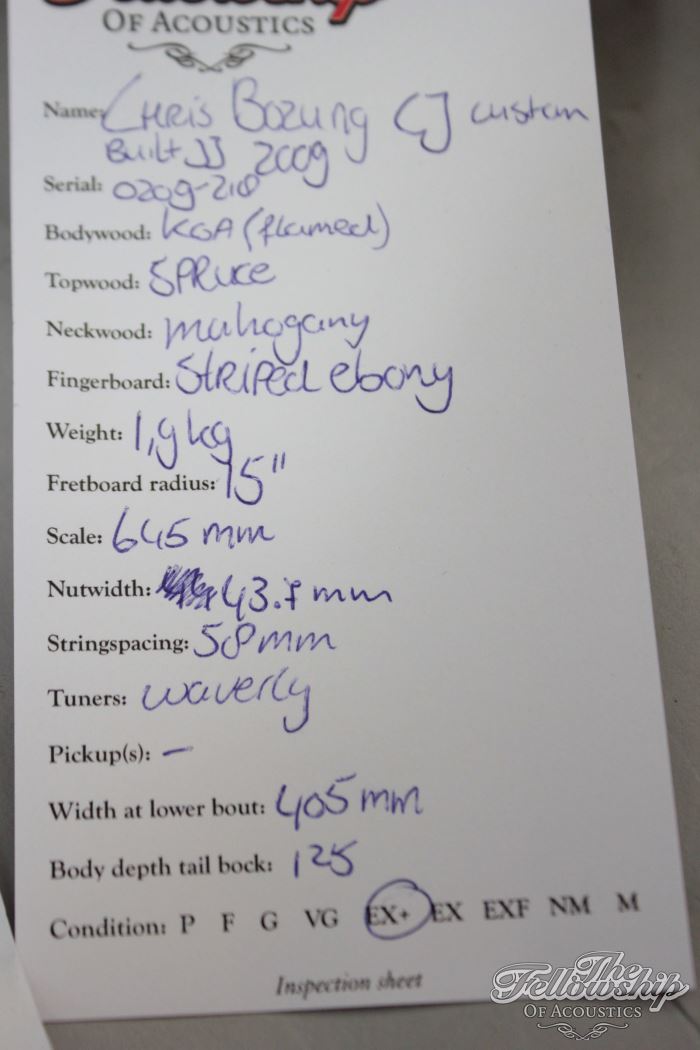 Fellowship
OF ACOUSTICS
Name: CHRIS BOZUNG CJ custom
BUILT JJ 2009
Serial: 0209-210
Bodywood: KOA (flamed)
Topwood: SPRUCE
Neckwood: mahogany
Fingerboard: STRIPED ebony
Weight: 1,9 kg
Fretboard radius: 15"
Scale: 645 mm
Nutwidth: 43.7 mm
Stringspacing: 58 mm
Tuners: waverly
Pickup(s): –
Width at lower bout: 405 mm
Body depth tail bock: 125
Condition: P F G VG EX+ EX EXF NM M
Inspection sheet
The
Fellowship
OF ACOUSTICS